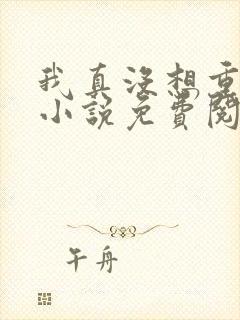 我真没想重
小说免费阅
午舟